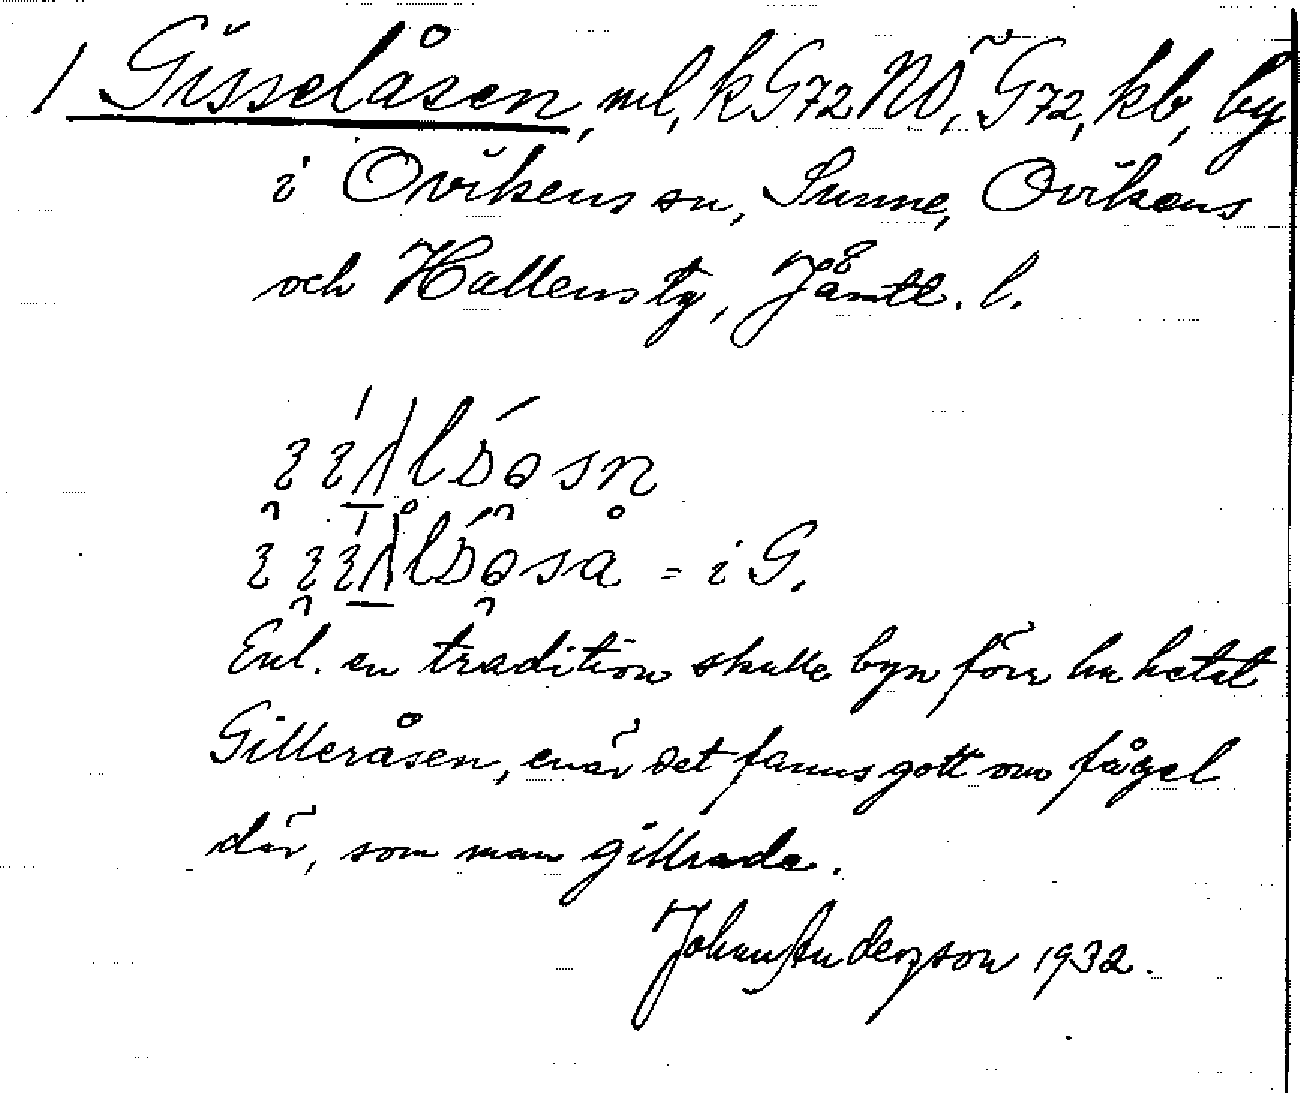 1 Gisselåsen, ml, k G72 NO, G72, kb, by
i Ovikens sn, Sunne, Ovikens
och Hallens tg, Jämtl. l.
= i G.
Enl. en tradition skulle byn förr ha hetat
Gilleråsen, enär det fanns gott om fågel
där, som man gillrade.
Johan Anderzson 1932.